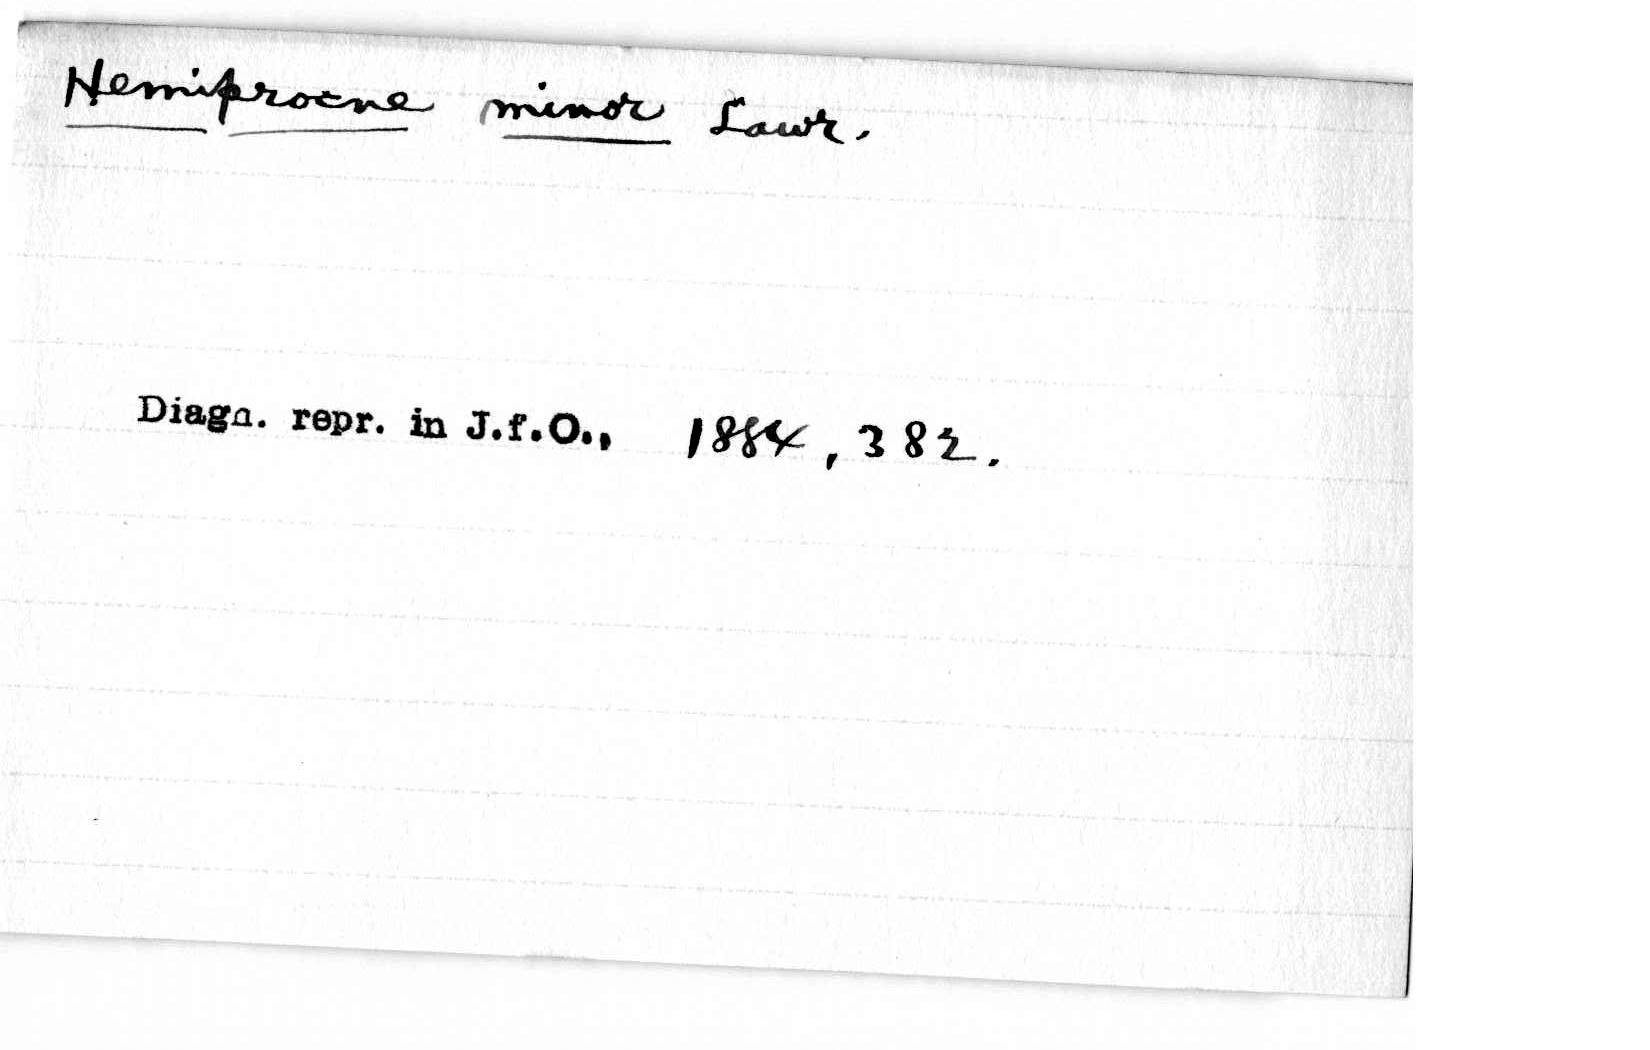 Hemiprocne minor Lawr.
Diagn. repr. in J.f.O., 1884, 382.